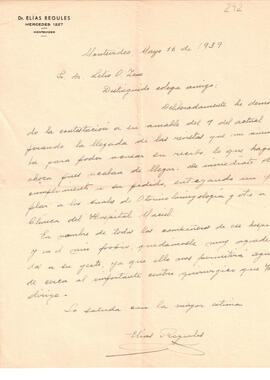 292
Dr. ELÍAS REGULES
MERCEDES 1227
MONTEVIDEO
Montevideo Mayo 16 de 1939
S. Dr. Lelio O. Zeno
Distinguido colega amigo:
Deliberadamente he demo
do la contestación a su amable del 9 del actual
la llegada de las revistas que me anun
ba para poder avisar su recibo, lo que hago
ahora pues acaban de llegar. De inmediato di
cumplimiento a su pedido, entregando un
plar a los Anales de Otorrinolaringología y otro a
Clínica del Hospital Maciel.
En nombre de todos los compañeros de ese hosp
y en el mío propio, quedamos le muy agrade
a su gesto, ya que ello nos permitirá
de cerca el importante centro quirúrgico que Vd
dirige.
Lo saluda con la mayor estima
Elías Regules